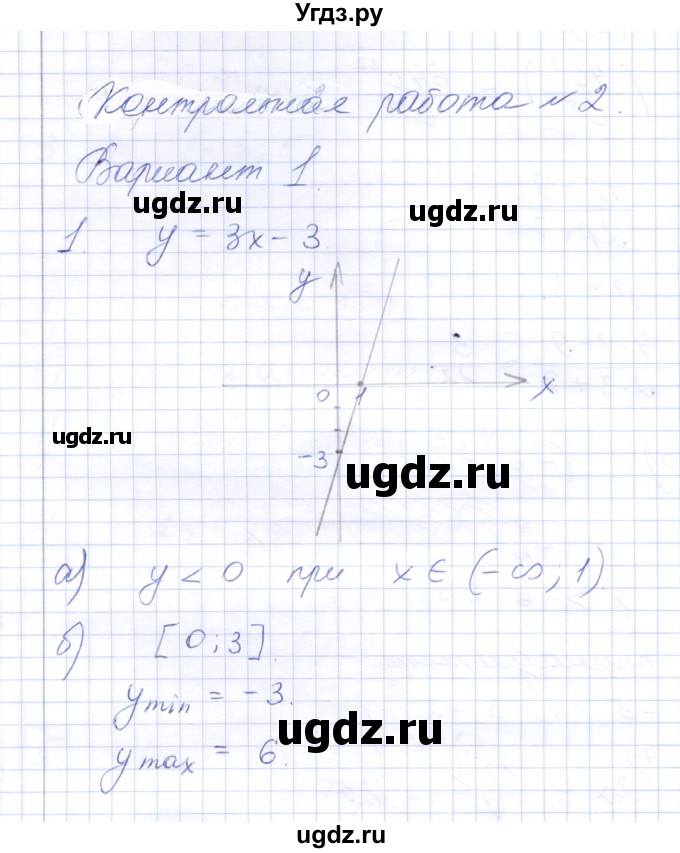 Угдз.ру
Контрольная работа № 2.
Вариант 1.
ugdz.ru
ugdz.ru
1. y = 3x - 3
y
0 1 x
ugdz.ru
-3
ugdz.ru
а) y < 0 при x ∈ (-∞; 1)
б) [0; 3].
y min = -3.
ugdz.ru
y max = 6.
ugdz.ru